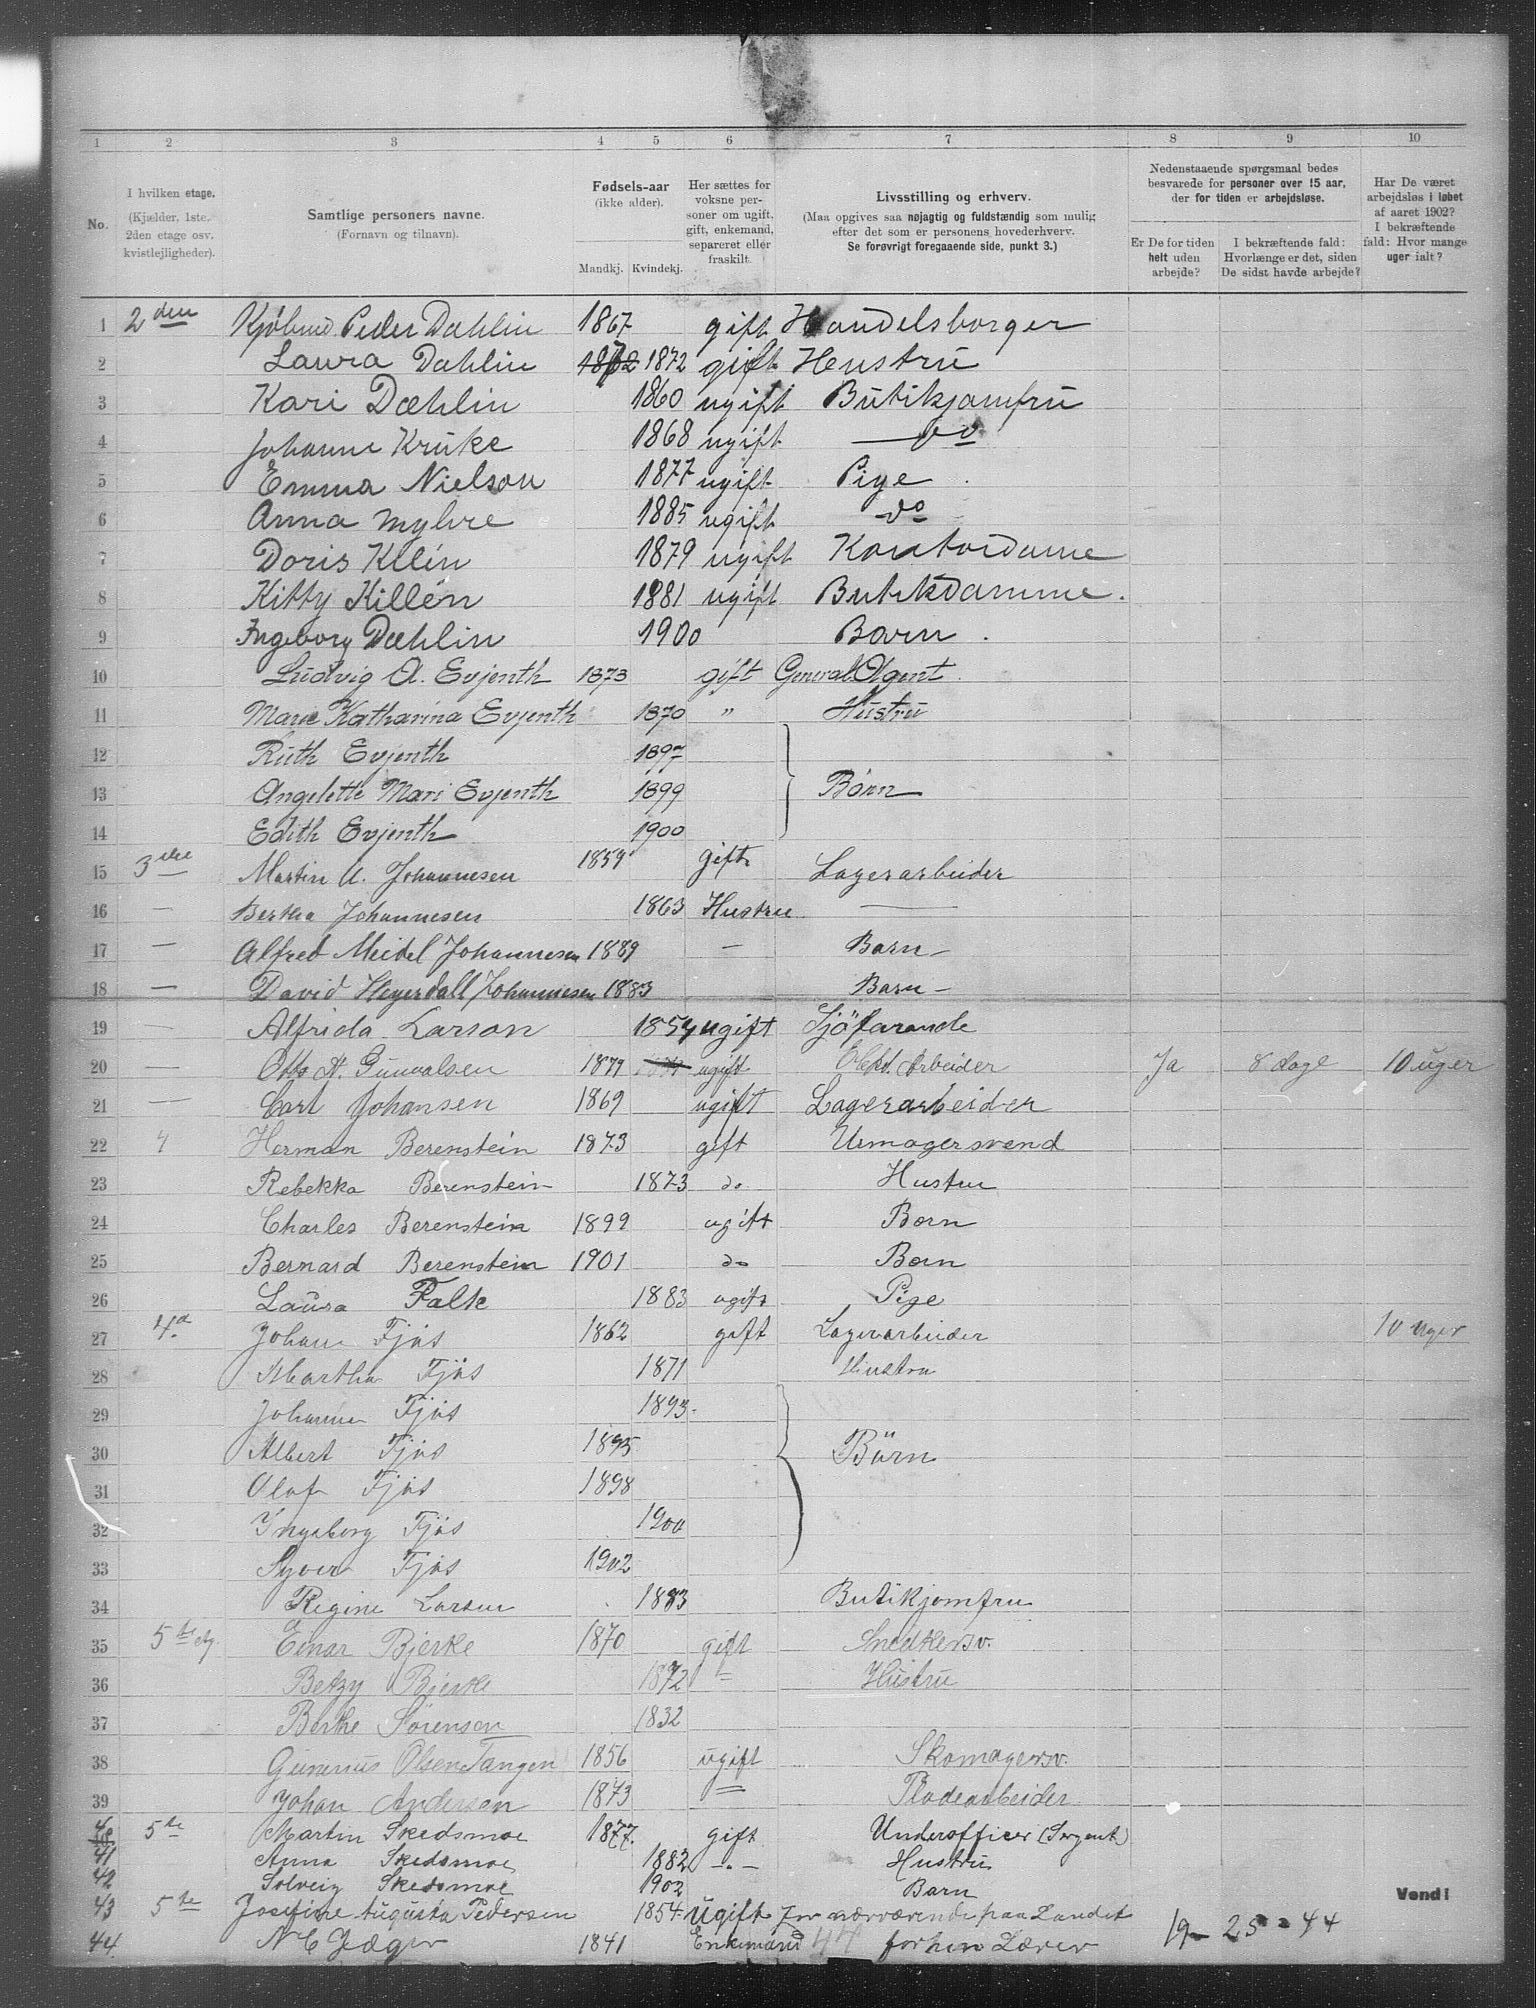 1 2 3 4 5 6 7 8 9 10
No.
I hvilken etage.
(Kjælder, 1ste, 2den etage osv. kvistlejligheder).
Samtlige personers navne.
(Fornavn og tilnavn).
Fødsels-aar
(ikke alder).
Mandkj. Kvindekj.
Her sættes for voksne personer om ugift, gift, enkemand, separeret eller fraskilt.
Livsstilling og erhverv.
(Maa opgives saa nøjagtig og fuldstændig som mulig efter det som er personens hovederhverv.
Se forøvrigt foregaaende side, punkt 3.)
Nedenstaaende spørgsmaal bedes besvarede for personer over 15 aar, der for tiden er arbejdsløse.
Er De for tiden helt uden arbejde?
I bekræftende fald: Hvorlænge er det, siden De sidst havde arbejde?
Har De været arbejdsløs i løbet af aaret 1902? I bekræftende fald: Hvor mange uger ialt?
1 2den Peder Dæhlin 1867 gift Handelsborger
2 Laura Dæhlin 1872 1872 gift Hustrü
3 Kari Dæhlin 1860 ugift Bütikjomfrü
4 Johanne Krüke 1868 ugift — do
5 Emma Nielson 1877 ugift Pige
6 Anna Myhre 1885 ugift do
7 Doris Kllén 1879 ugift Kontordame
8 Kitty Killén 1881 ugift Butikdamme.
9 Ingeborg Dæhlin 1900 Barn.
10 Ludvig A. Evjenth 1873 gift General Agent.
11 Marie Katharina Evjenth 1870 " Hüstrü
12 Ruth Evjenth 1897
13 Angelette Mari Evjenth 1899 Børn
14 Edith Evjenth 1900
15 3die Martin A. Johannesen 1859 gift Lagerarbeider
16 — Bertha Johannesen 1863 Hustru —
17 — Alfred Meidel Johannesen 1889 — Barn —
18 — David Heyerdall Johannesen 1883 Barn —
19 — Alfrida Larson 1854 ugift Sjöfarande
20 — Otto A. Gunvalsen 1879 ugift Arbeider Ja 8 dage 10 uger
21 — Carl Johansen 1869 ugift Lagerarbeider
22 4 Herman Berenstein 1873 gift Urmagersvend
23 Rebekka Berenstein 1873 do Hustru
24 Charles Berenstein 1899 ugift Barn
25 Bernard Berenstein 1901 do Barn
26 Laura Falk 1883 ugift Pige
27 4a Johan Fjøs 1862 gift Lagerarbeider 10 uger
28 Martha Fjøs 1871 Hustru
29 Johanne Fjøs 1893
30 Albert Fjøs 1895 Börn
31 Olaf Fjøs 1898
32 Ingeborg Fjøs 1900
33 Syver Fjøs 1902
34 Regine Larsen 1883 Butikjomfru
35 5te etg. Einar Bjerke 1870 gift Snedkersv.
36 Betzy Bjerke 1872 = Hüstrü
37 Berthe Sørensen 1832
38 Gunerius Olsen Tangen 1856 ugift Skomagersv.
39 Johan Anderson 1873 = Pladearbeider
40 5te Martin Skedsmoe 1877. gift Underofficer (Sergent)
41 Anna Skedsmoe 1882 -"- Hustru
42 Solveig Skedsmoe 1902 Barn
43 5te Josefine Augusta Pedersen 1854 Ugift For nærværende paa Landet
44 N C Jæger 1841 Enkemand 44 forhen Lærer
19 - 25 = 44
Vend!